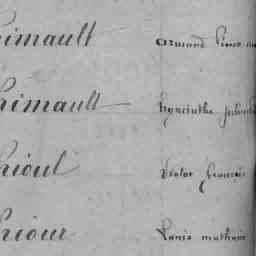 himault Armand Pierre
himault hyacinthe
hioul Victor françois
hiour Louis mathurin